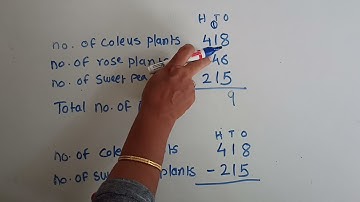 H T O
1
no. of Coleus plants 418
no. of rose plants 46
no. of sweet pea 215
Total no. of 9
H T O
no. of coleus plants 418
no. of sweet plants - 215